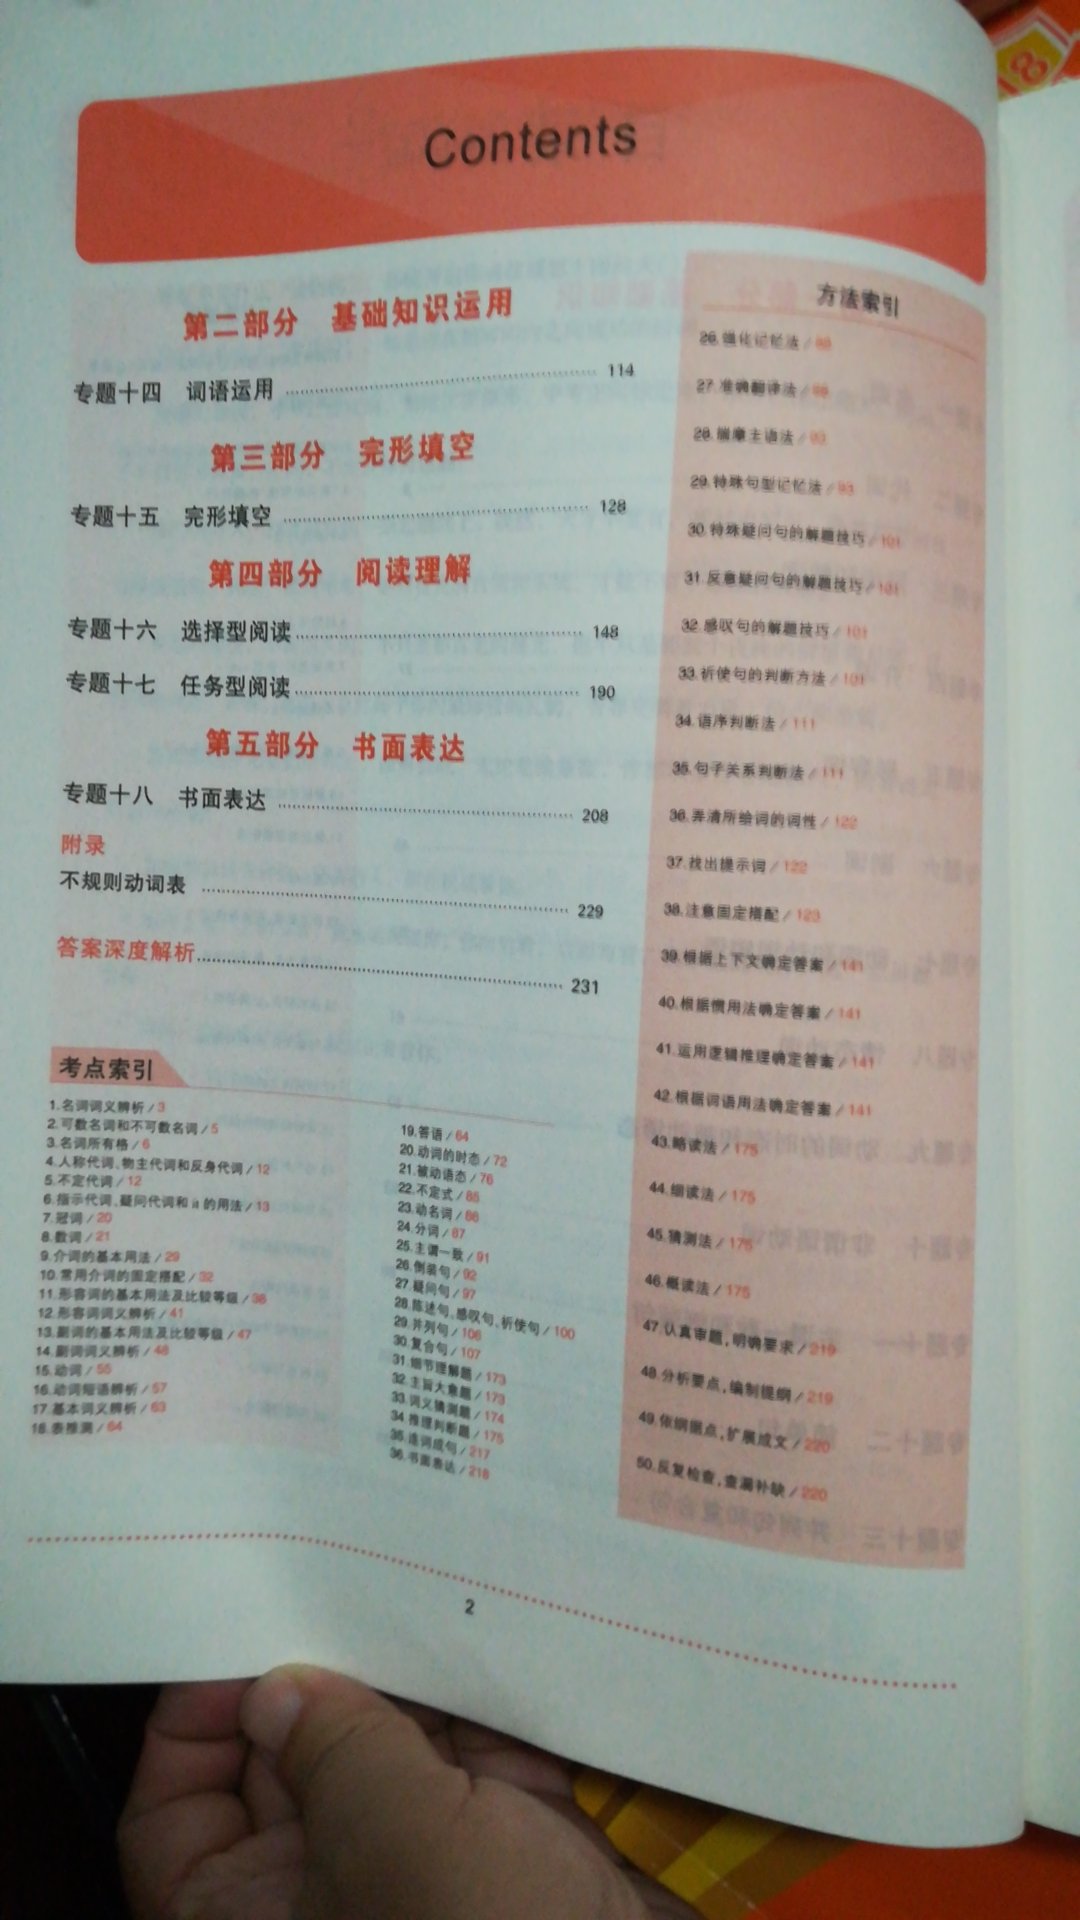 Contents
第二部分 基础知识运用
专题十四 词语运用 114
第三部分 完形填空
专题十五 完形填空 128
第四部分 阅读理解
专题十六 选择型阅读 148
专题十七 任务型阅读 190
第五部分 书面表达
专题十八 书面表达 208
附录
不规则动词表 229
答案深度解析 231
考点索引
1.名词词义辨析/3
2.可数名词和不可数名词/5
3.名词所有格/6
4.人称代词、物主代词和反身代词/12
5.不定代词/12
6.指示代词、疑问代词和 it 的用法/13
7.冠词/20
8.数词/21
9.介词的基本用法/29
10.常用介词的固定搭配/32
11.形容词的基本用法及比较等级/38
12.形容词词义辨析/41
13.副词的基本用法及比较等级/47
14.副词词义辨析/48
15.动词/55
16.动词短语辨析/57
17.基本词义辨析/63
18.表推测/64
19.答语/64
20.动词的时态/72
21.被动语态/76
22.不定式/85
23.动名词/86
24.分词/87
25.主谓一致/91
26.倒装句/92
27.疑问句/97
28.陈述句、感叹句、祈使句/100
29.并列句/106
30.复合句/107
31.细节理解题/173
32.主旨大意题/173
33.词义猜测题/174
34.推理判断题/175
35.连词成句/217
36.书面表达/218
方法索引
26.强化记忆法/88
27.准确翻译法/88
28.揣摩主语法/93
29.特殊句型记忆法/93
30.特殊疑问句的解题技巧/101
31.反意疑问句的解题技巧/101
32.感叹句的解题技巧/101
33.祈使句的判断方法/101
34.语序判断法/111
35.句子关系判断法/111
36.弄清所给词的词性/122
37.找出提示词/122
38.注意固定搭配/123
39.根据上下文确定答案/141
40.根据惯用法确定答案/141
41.运用逻辑推理确定答案/141
42.根据词语用法确定答案/141
43.略读法/175
44.细读法/175
45.猜测法/175
46.概读法/175
47.认真审题,明确要求/219
48.分析要点,编制提纲/219
49.依纲据点,扩展成文/220
50.反复检查,查漏补缺/220
2